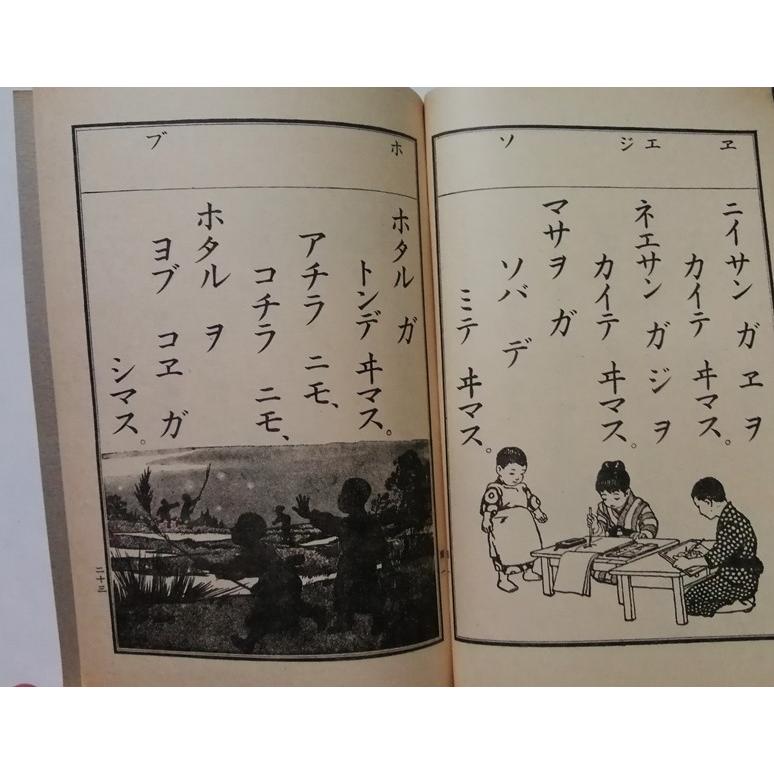 ヱ エジ ソ
ニイサン ガ ヱ ヲ
カイテ ヰマス。
ネエサン ガ ジ ヲ
カイテ ヰマス。
マサヲ ガ
ソバ デ
ミテ ヰマス。
ホ ブ
ホタル ガ
トンデ ヰマス。
アチラ ニモ、
コチラ ニモ、
ホタル ヲ
ヨブ コヱ ガ
シマス。
二十三